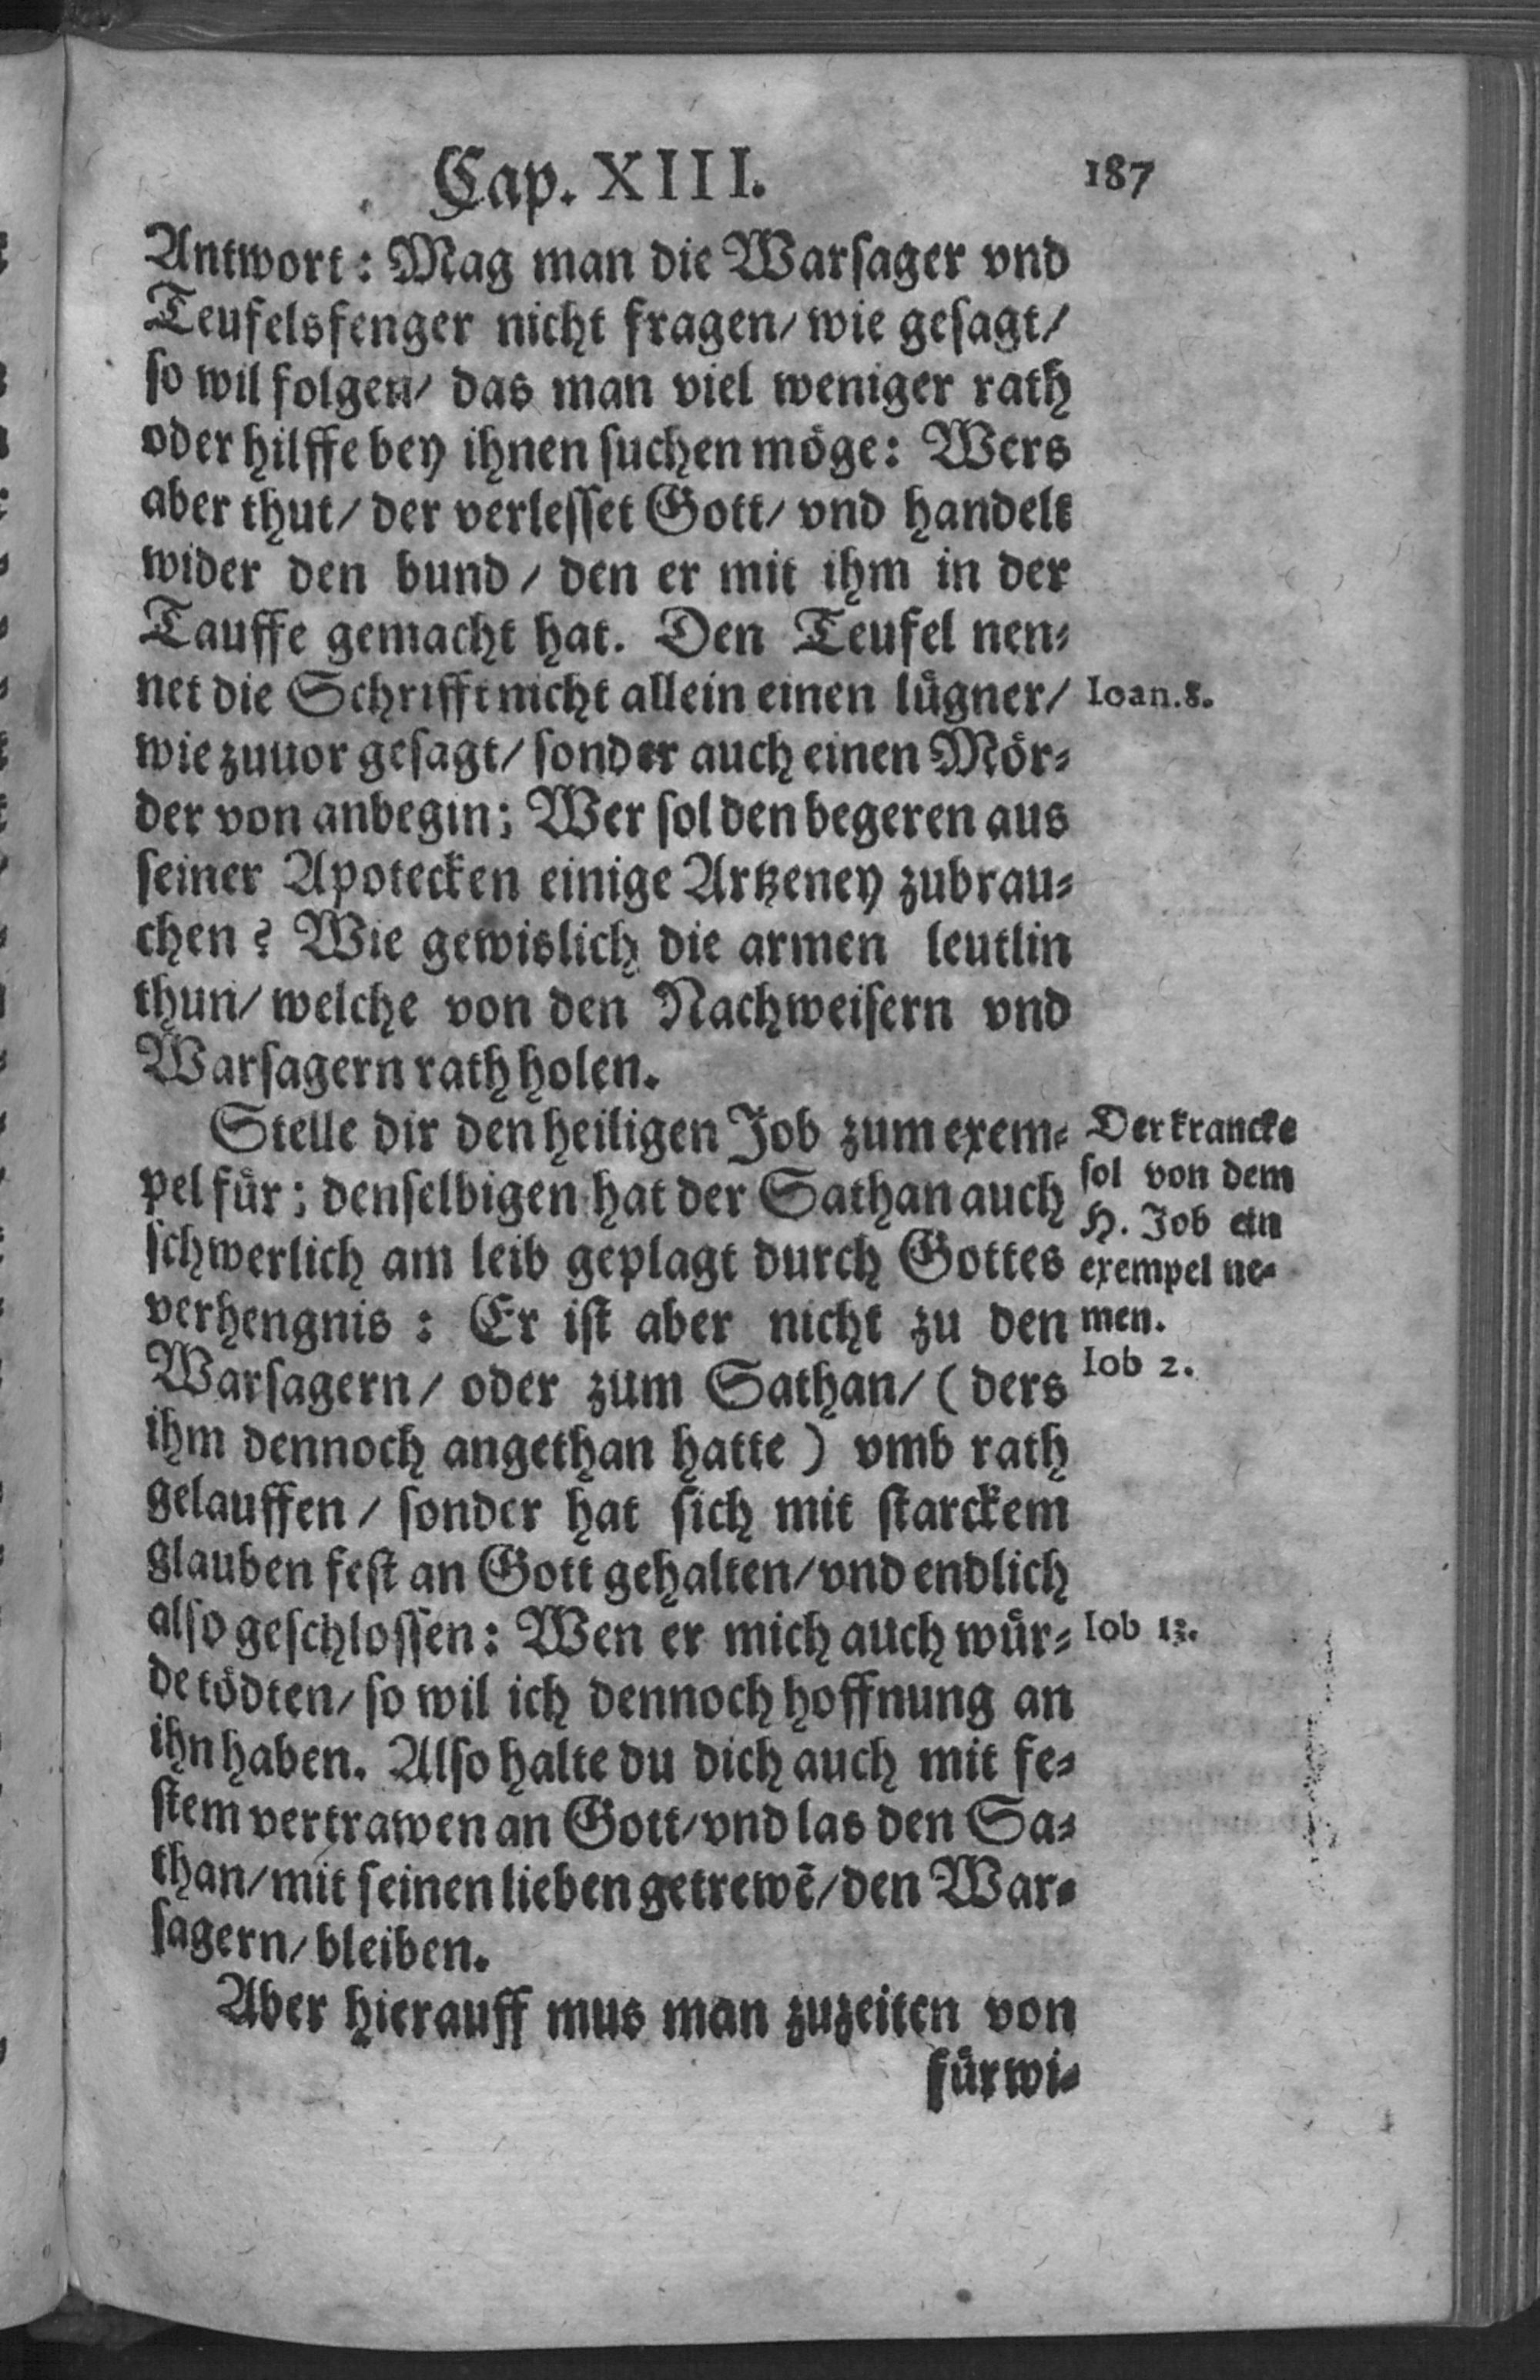 Cap. XIII. 187
Antwort: Mag man die Warsager vnd
Teufelsfenger nicht fragen/ wie gesagt/
so wil folgen/ das man viel weniger rath
oder hilffe bey ihnen suchen möge: Wers
aber thut/ der verlesset Gott/ vnd handelt
wider den bund / den er mit ihm in der
Tauffe gemacht hat. Den Teufel nen-
net die Schrifft nicht allein einen lügner/
Ioan.8.
wie zuuor gesagt/ sonder auch einen Mör-
der von anbegin; Wer sol den begeren aus
seiner Apotecken einige Artzeney zubrau-
chen? Wie gewislich die armen leutlin
thun/ welche von den Nachweisern vnd
Warsagern rath holen.
Stelle dir den heiligen Job zum exem-
pel für; denselbigen hat der Sathan auch
schwerlich am leib geplagt durch Gottes
verhengnis : Er ist aber nicht zu den
Warsagern/ oder zum Sathan/ (ders
ihm dennoch angethan hatte) vmb rath
gelauffen / sonder hat sich mit starckem
glauben fest an Gott gehalten/ vnd endlich
also geschlossen: Wen er mich auch wür-
de tödten/ so wil ich dennoch hoffnung an
ihn haben. Also halte du dich auch mit fe-
stem vertrawen an Gott/ vnd las den Sa-
than/ mit seinen lieben getrewē/ den War-
sagern/ bleiben.
Aber hierauff mus man zuzeiten von
fürwi-
Der krancke
sol von dem
H. Job ein
exempel ne-
men.
Iob 2.
Iob 13.